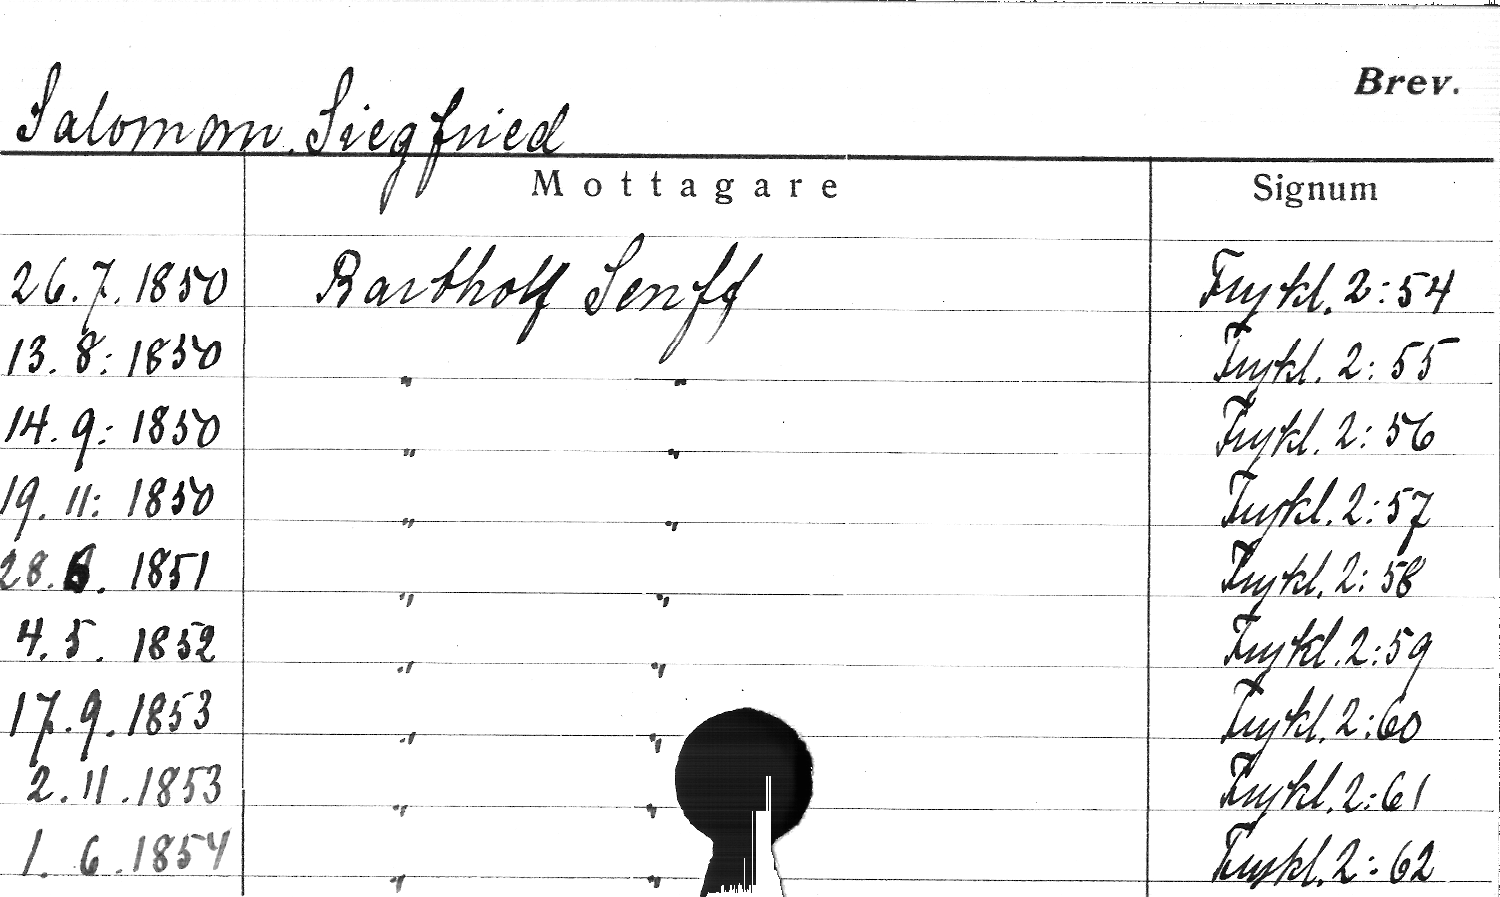 Brev.
Salomon. Siegfried
Mottagare Signum
26.7.1850 Bartholf Senff Frykl. 2:54
13. 8: 1850 " " Frykl. 2: 55
14. 9: 1850 " " Frykl. 2: 56
19. 11: 1850 " " Frykl. 2:57
28. 6. 1851 " " Frykl. 2: 58
4. 5. 1852 " " Frykl. 2:59
17.9.1853 " " Frykl. 2:60
2.11.1853 " " Frykl. 2:61
1. 6.1854 " " Frykl. 2:62